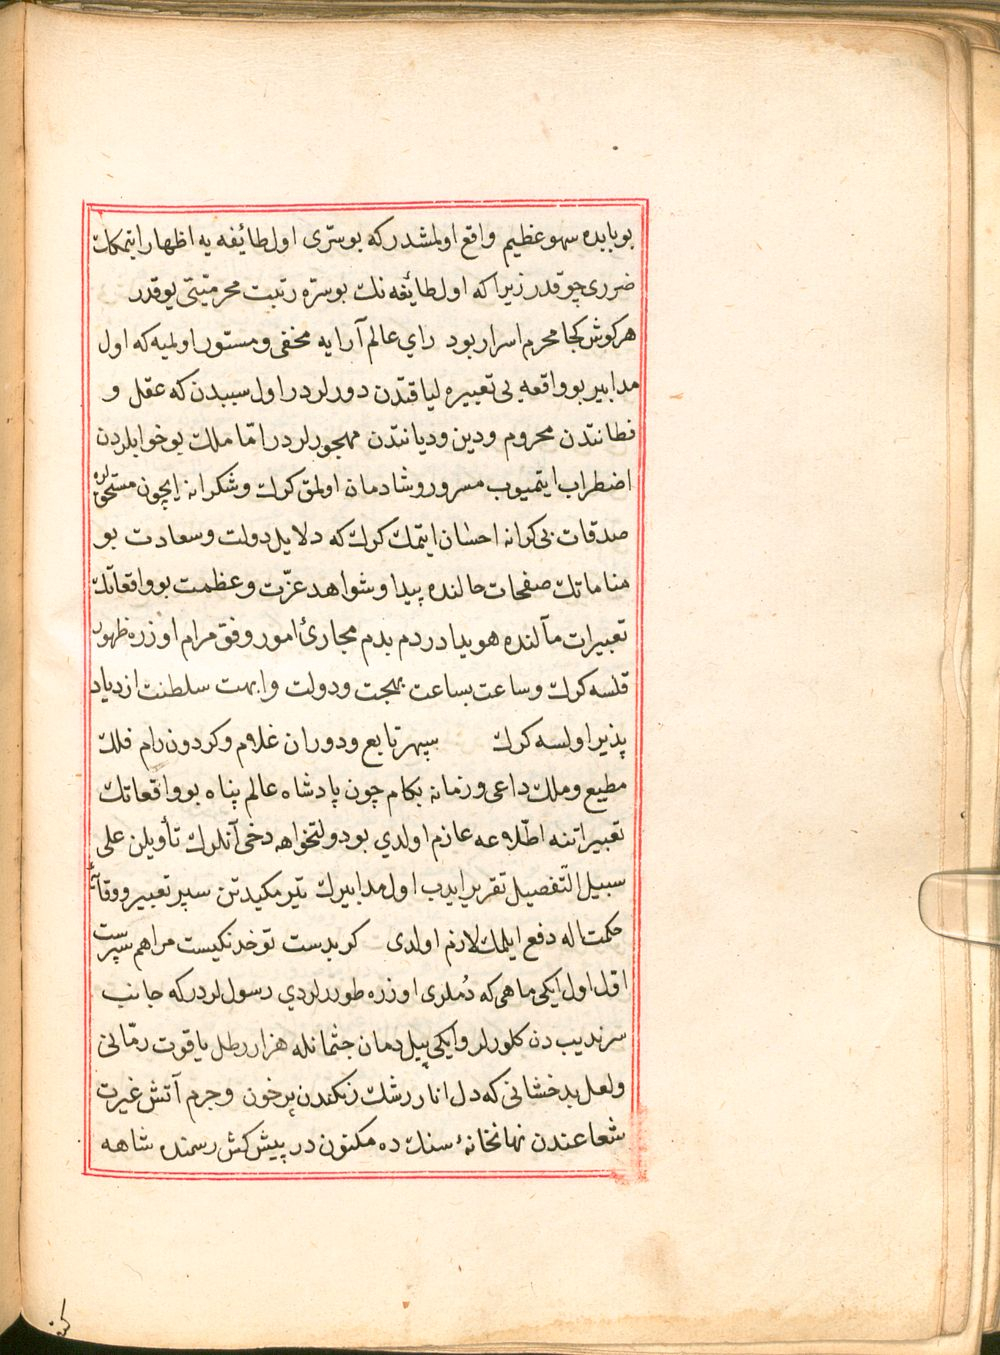 بو بابده سهو عظیم واقع اولمشدر که بو سرّی اول طائفه یه اظهار ایتمكك
ضرری چوقدر زیرا که اول طائفه نك بو سرّه رتبت محرمیّتی یوقدر
هر کوش کجا محرم اسرار بود رای عالم آرایه مخفی و مستور اولمیه که اول
مدابیر بو واقعه یی تعبیره لیاقتدن دورلردر اول سببدن که عقل و
فطانتدن محروم و دین و دیانتدن مهجورلردر امّا ملك بو خوابلردن
اضطراب ایتمیوب مسرور و شادمان اولمق کرك و شکرانه ایچون مستحقلره
صدقات بی کرانه احسان ایتمك کرك که دلایل دولت و سعادت بو
مناماتك صفحات حالنده پیدا و شواهد عزّت و عظمت بو واقعاتك
تعبیرات مآلنده هویدادر دم بدم مجارئ امور وفق مرام اوزره ظهور
قلسه کرك و ساعت بساعت بهجت و دولت و ابهت سلطنت ازدیاد
پذیر اولسه کرك سپهر تابع و دوران غلام و کردون رام فلك
مطیع و ملك داعی و زمانه بکام چون پادشاه عالم پناه بو واقعاتك
تعبیراتنه اطّلاعه عازم اولدی بو دولتخواهه دخی آنلرك تأویلن علی
سبیل التّفصیل تقریر ایدب اول مدابیرك تیر مکیدتن سپر تعبیر و وقایهٔ
حکمتله دفع ایلمك لازم اولدی کر بدست تو خدنکیست مراهم سپرست
اوّل اول ایکی ماهی که دُملری اوزره طوررلردی رسوللردر که جانب
سرندیب دن کلورلر و ایکی پیل دمان جثمانله هزار رطل یاقوت رمّانی
و لعل بدخشانی که دل انار رشك رنکندن پر خون و جرم آتش غیرت
شعاعندن نهانخانهٔ سنك ده مکنون در پیش کش رسمنده شاهه